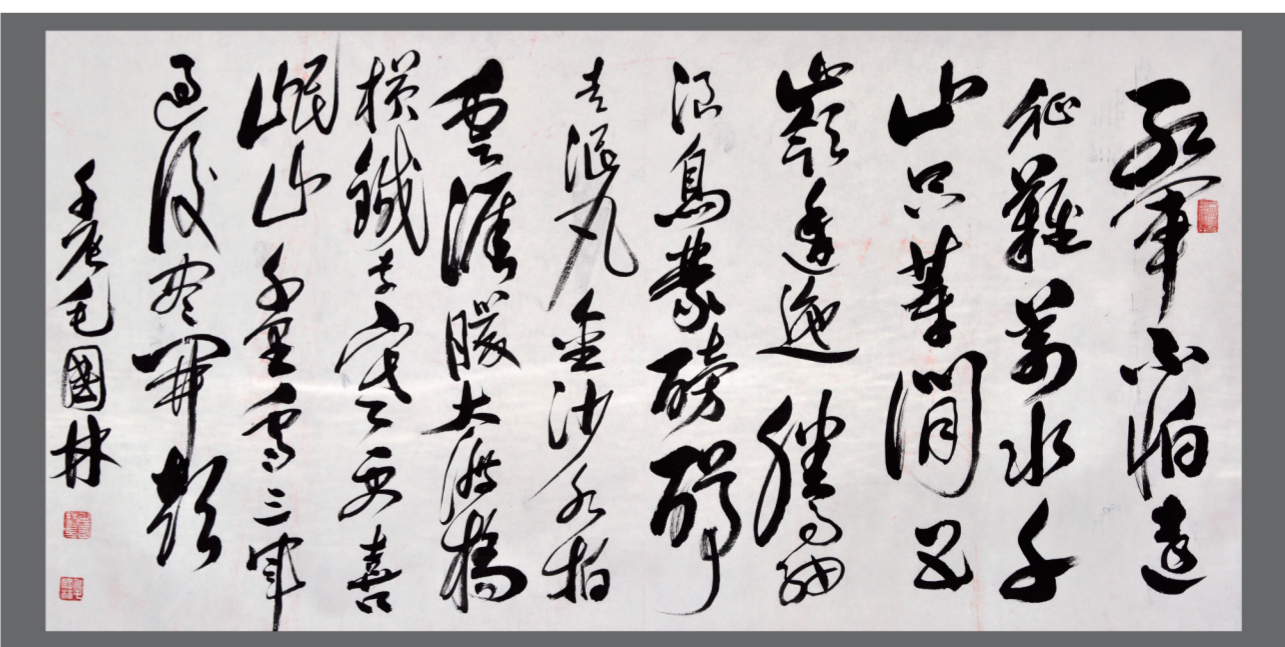 紅軍不怕遠
征難萬水千
山只等閒五
嶺逶迤騰細
浪烏蒙磅礴
走泥丸金沙水拍
雲涯暖大渡橋
橫鐵索寒更喜
岷山千里雪三軍
過後盡開顏
壬辰毛國林